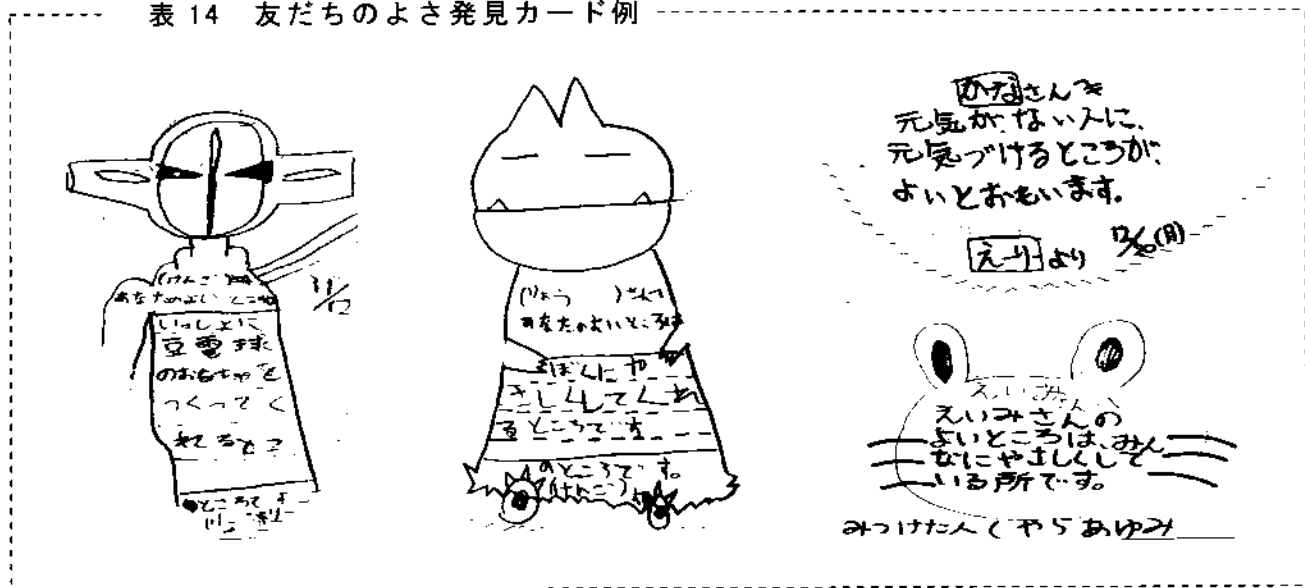 表14 友だちのよさ発見カード例
(けんご)
あなたのよいところは
11/12
いっしょに
豆電球
のおもちゃを
つくってく
れるとこ
ろです
(りょう)さんの
あなたのよいところは
ぼくにや
さしくしてくれ
るところです
のところです。
(けんご)
かなさんを
元気が、ない人に、
元気づけるところが、
よいとおもいます。
えーりより 12/20(月)
えいみさんへ
えいみさんの
よいところは、みん
なにやさしくして
いる所です。
みつけた人(やらあゆみ